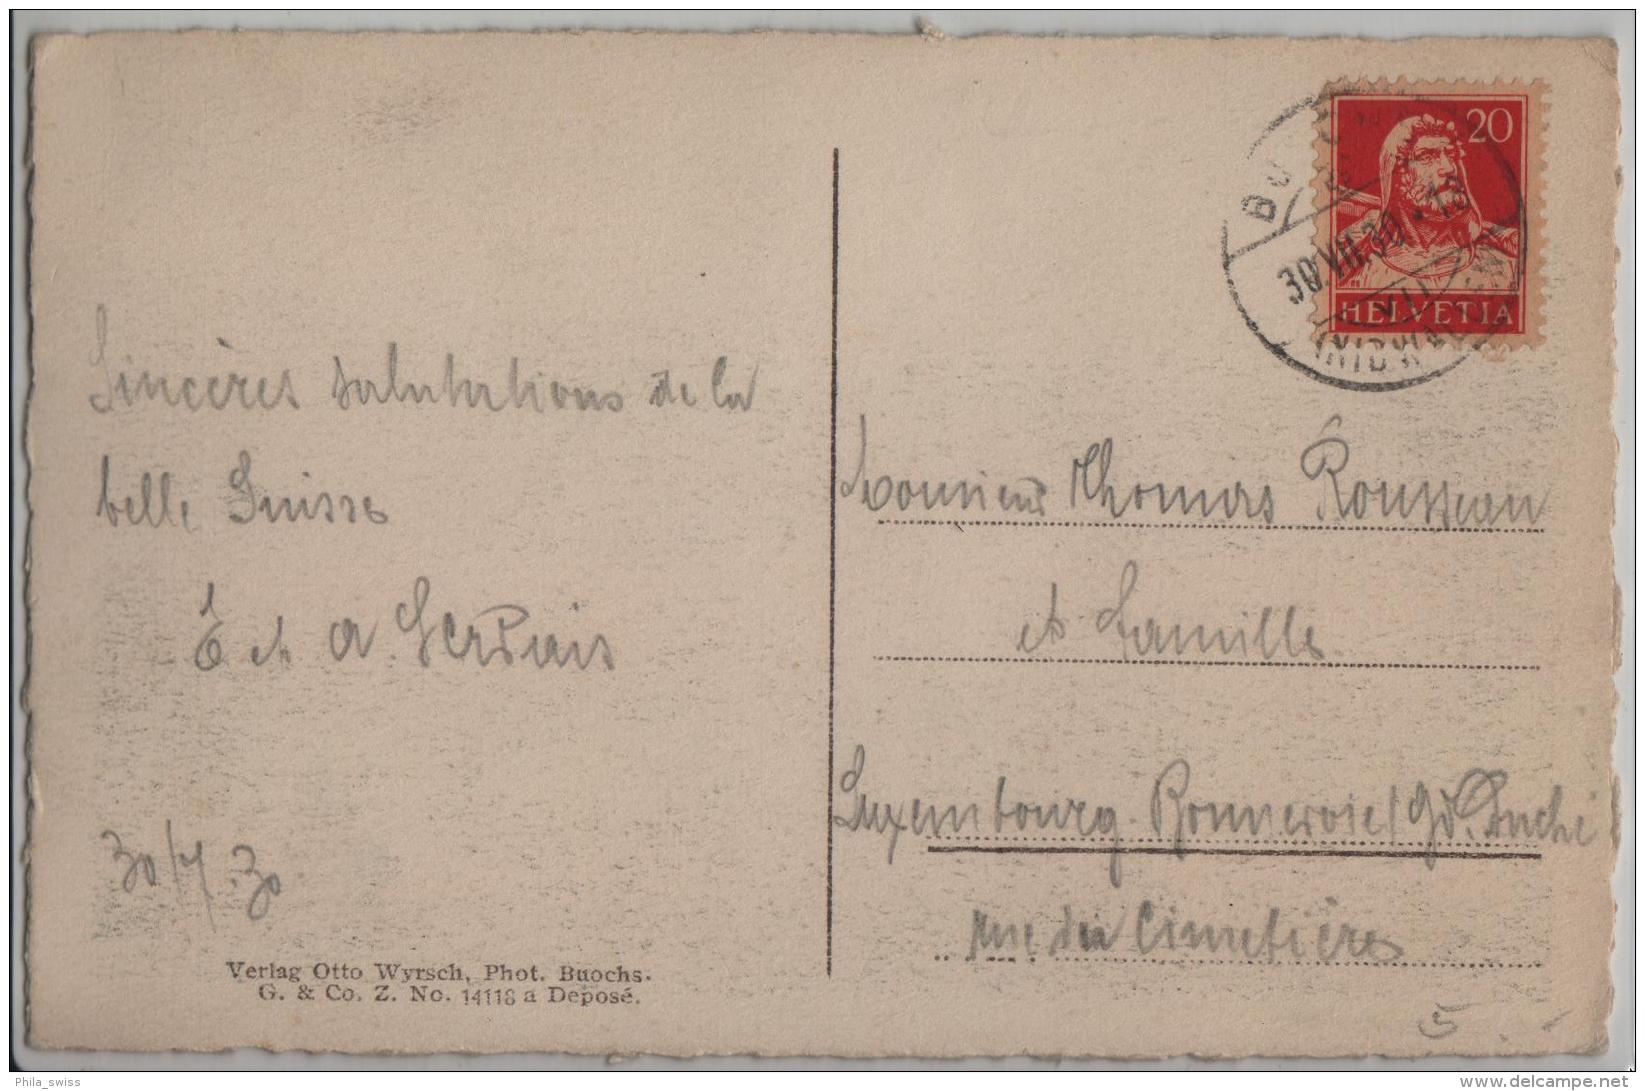 Sincères salutations de la
belle Suisse
E et A. Gervais
30/7.30
Verlag Otto Wyrsch, Phot. Buochs.
G. & Co. Z. No. 14118 a Deposé.
20
HELVETIA
BUOCHS
30.VII.30.-18
(NIDWALDEN)
Monsieur Thomas Rousseau
et famille
Luxembourg-Bonnevoie/Gd. Duché
rue du Cimetière
5.-
Phila_swiss
delcampe.net